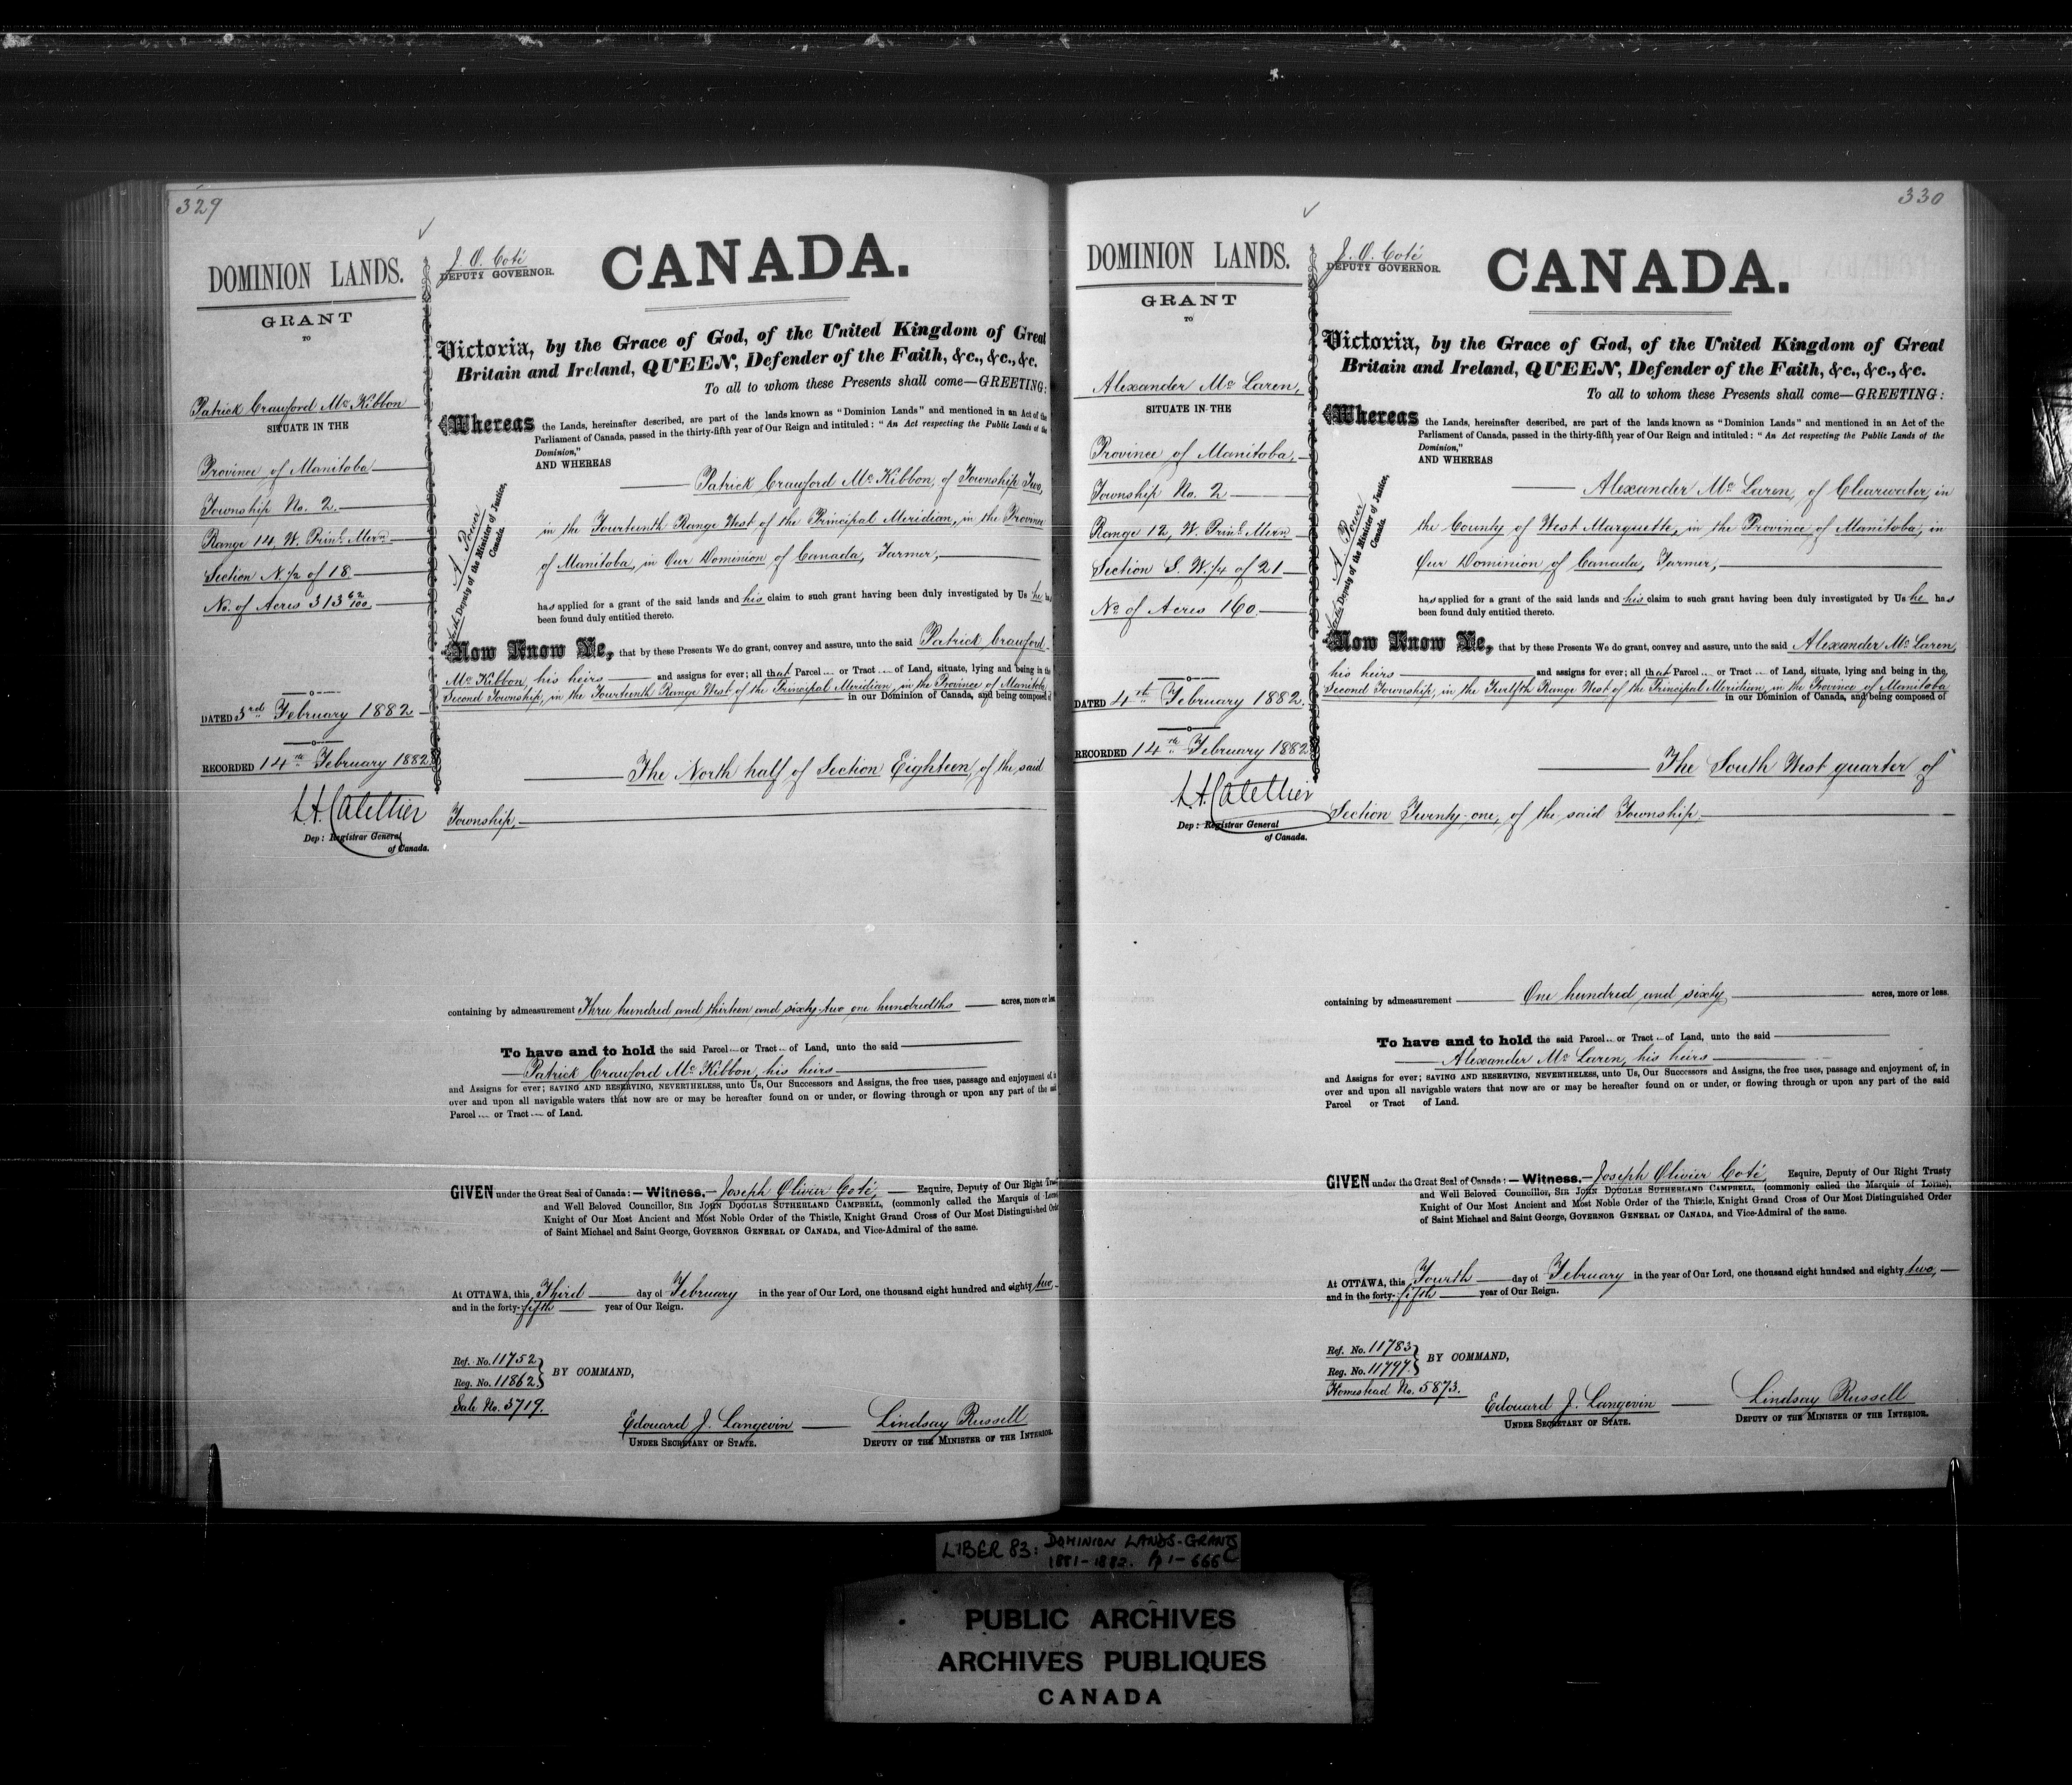 329
DOMINION LANDS.
GRANT
TO
Patrick Crawford Mc Kibbon
SITUATE IN THE
Province of Manitoba
Township No. 2.
Range 14, W. Prinl. Mern
Section N. 1/2 of 18
No. of Acres 313 62/100
DATED 3rd February 1882
RECORDED 14th February 1882
Dep: Registrar General
of Canada.
J. O. Coté
DEPUTY GOVERNOR.
CANADA.
Victoria, by the Grace of God, of the United Kingdom of Great
Britain and Ireland, QUEEN, Defender of the Faith, &c., &c., &c.
To all to whom these Presents shall come—GREETING:
Whereas the Lands, hereinafter described, are part of the lands known as "Dominion Lands" and mentioned in an Act of the
Parliament of Canada, passed in the thirty-fifth year of Our Reign and intituled: "An Act respecting the Public Lands of the
Dominion,"
AND WHEREAS
Patrick Crawford Mc Kibbon, of Township Two,
in the Fourteenth Range West of the Principal Meridian, in the Province
of Manitoba, in Our Dominion of Canada, Farmer,
A Power
Deputy of the Minister of Justice,
Canada.
has applied for a grant of the said lands and his claim to such grant having been duly investigated by Us he has
been found duly entitled thereto.
Now Know Ye, that by these Presents We do grant, convey and assure, unto the said Patrick Crawford
Mc Kibbon, his heirs and assigns for ever; all that Parcel or Tract of Land, situate, lying and being in the
Second Township, in the Fourteenth Range West of the Principal Meridian, in the Province of Manitoba
in our Dominion of Canada, and being composed of
The North half of Section Eighteen, of the said
Township,
containing by admeasurement Three hundred and thirteen and sixty-two one hundredths acres, more or less
To have and to hold the said Parcel or Tract of Land, unto the said
Patrick Crawford Mc Kibbon, his heirs
and Assigns for ever; SAVING AND RESERVING, NEVERTHELESS, unto Us, Our Successors and Assigns, the free uses, passage and enjoyment of, in
over and upon all navigable waters that now are or may be hereafter found on or under, or flowing through or upon any part of the said
Parcel or Tract of Land.
GIVEN under the Great Seal of Canada:—Witness.—Joseph Olivier Coté, Esquire, Deputy of Our Right Trusty
and Well Beloved Councillor, SIR JOHN DOUGLAS SUTHERLAND CAMPBELL, (commonly called the Marquis of Lorne),
Knight of Our Most Ancient and Most Noble Order of the Thistle, Knight Grand Cross of Our Most Distinguished Order
of Saint Michael and Saint George, GOVERNOR GENERAL OF CANADA, and Vice-Admiral of the same.
At OTTAWA, this Third day of February in the year of Our Lord, one thousand eight hundred and eighty two,
and in the forty-fifth year of Our Reign.
Ref. No. 11752
Reg. No. 11862
BY COMMAND,
Sale No. 3719.
Edouard J. Langevin
UNDER SECRETARY OF STATE.
Lindsay Russell
DEPUTY OF THE MINISTER OF THE INTERIOR.
330
DOMINION LANDS.
GRANT
TO
Alexander Mc Laren,
SITUATE IN THE
Province of Manitoba,
Township No. 2
Range 12, W. Prinl. Mern
Section S. W. 1/4 of 21
No of Acres 160.
DATED 4th February 1882.
RECORDED 14th February 1882
Dep: Registrar General
of Canada.
J. O. Coté
DEPUTY GOVERNOR.
CANADA.
Victoria, by the Grace of God, of the United Kingdom of Great
Britain and Ireland, QUEEN, Defender of the Faith, &c., &c., &c.
To all to whom these Presents shall come—GREETING:
Whereas the Lands, hereinafter described, are part of the lands known as "Dominion Lands" and mentioned in an Act of the
Parliament of Canada, passed in the thirty-fifth year of Our Reign and intituled: "An Act respecting the Public Lands of the
Dominion,"
AND WHEREAS
Alexander Mc Laren, of Clearwater, in
the County of West Marquette, in the Province of Manitoba, in
Our Dominion of Canada, Farmer,
A Power
Deputy of the Minister of Justice,
Canada.
has applied for a grant of the said lands and his claim to such grant having been duly investigated by Us he has
been found duly entitled thereto.
Now Know Ye, that by these Presents We do grant, convey and assure, unto the said Alexander Mc Laren,
his heirs and assigns for ever; all that Parcel or Tract of Land, situate, lying and being in the
Second Township, in the Twelfth Range West of the Principal Meridian, in the Province of Manitoba
in our Dominion of Canada, and being composed of
The South West quarter of
Section Twenty-one, of the said Township
containing by admeasurement One hundred and sixty acres, more or less.
To have and to hold the said Parcel or Tract of Land, unto the said
Alexander Mc Laren, his heirs
and Assigns for ever; SAVING AND RESERVING, NEVERTHELESS, unto Us, Our Successors and Assigns, the free uses, passage and enjoyment of, in
over and upon all navigable waters that now are or may be hereafter found on or under, or flowing through or upon any part of the said
Parcel or Tract of Land.
GIVEN under the Great Seal of Canada:—Witness.—Joseph Olivier Coté Esquire, Deputy of Our Right Trusty
and Well Beloved Councillor, SIR JOHN DOUGLAS SUTHERLAND CAMPBELL, (commonly called the Marquis of Lorne),
Knight of Our Most Ancient and Most Noble Order of the Thistle, Knight Grand Cross of Our Most Distinguished Order
of Saint Michael and Saint George, GOVERNOR GENERAL OF CANADA, and Vice-Admiral of the same.
At OTTAWA, this Fourth day of February in the year of Our Lord, one thousand eight hundred and eighty two,
and in the forty-fifth year of Our Reign.
Ref. No. 11783
Reg. No. 11797.
BY COMMAND,
Homestead No. 5873.
Edouard J. Langevin
UNDER SECRETARY OF STATE.
Lindsay Russell
DEPUTY OF THE MINISTER OF THE INTERIOR.
LIBER 83: DOMINION LANDS-GRANTS
1881-1882. Pp 1-666
PUBLIC ARCHIVES
ARCHIVES PUBLIQUES
CANADA